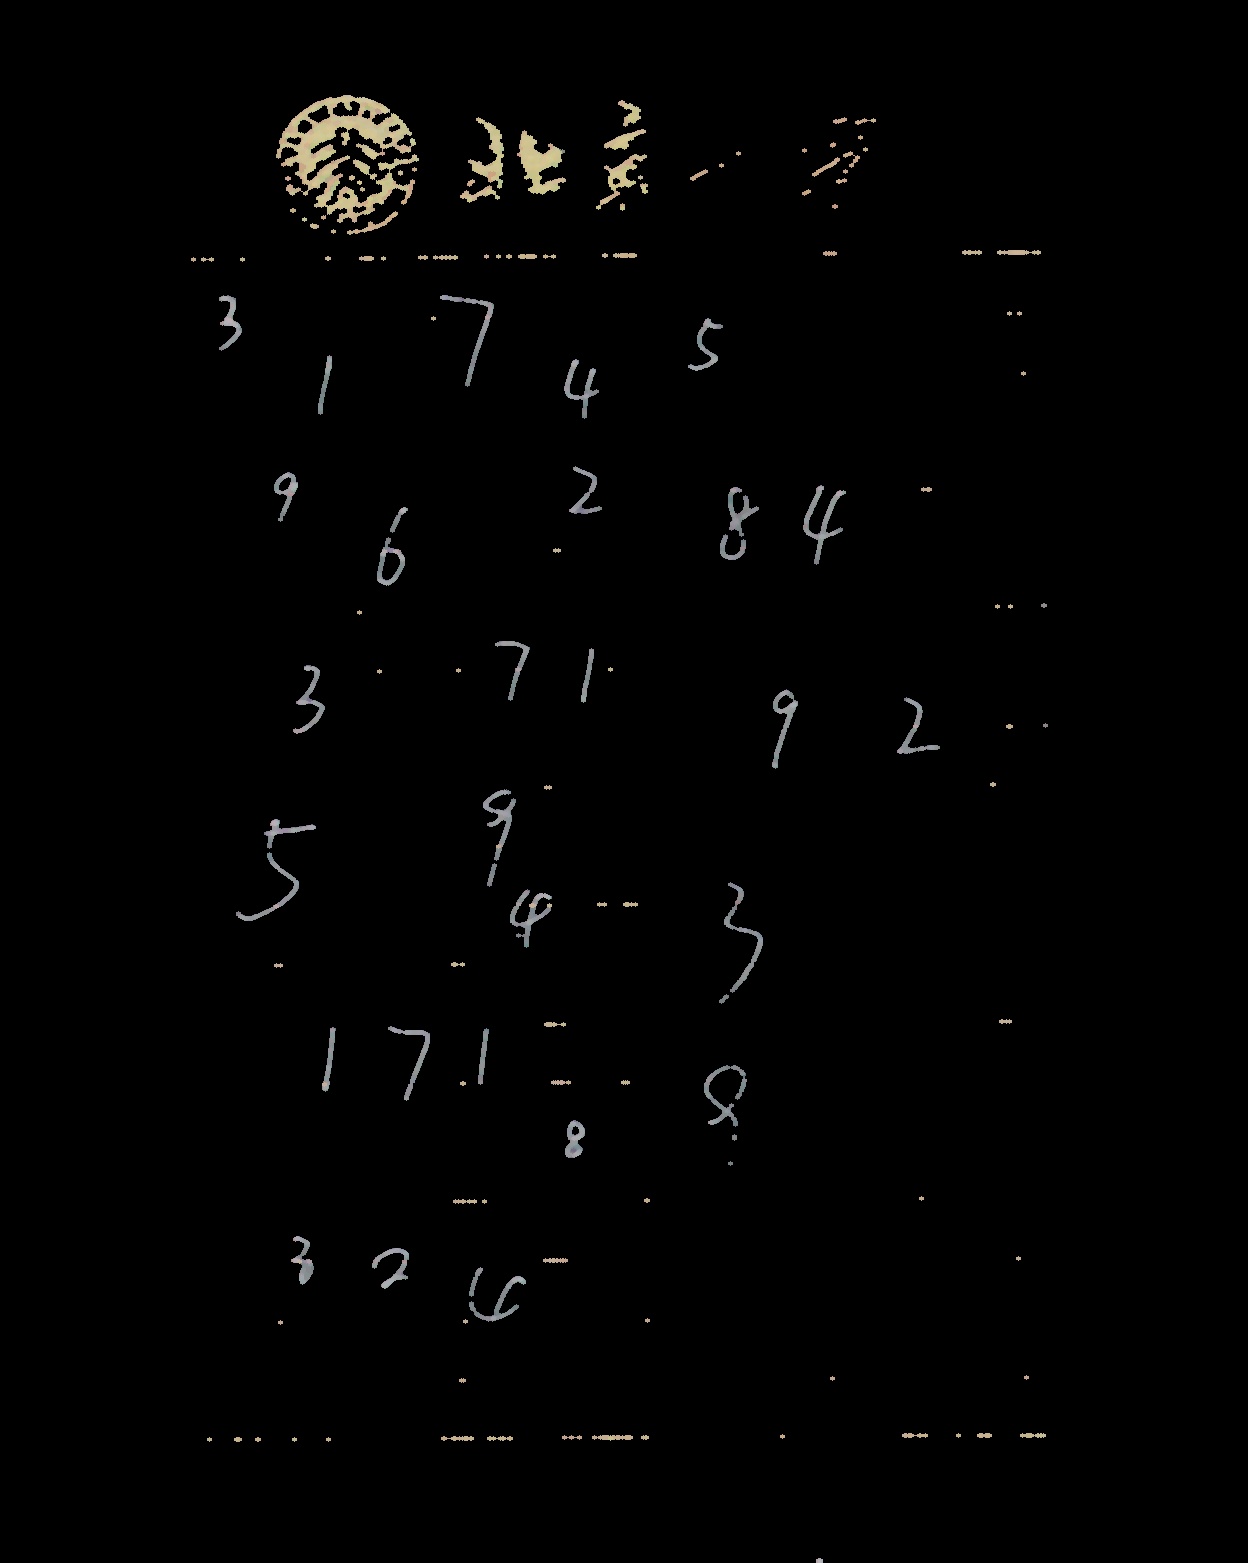 3 1 7 4 5
9 6 2 8 4
3 7 1 9 2
5 9 4 3
1 7 1 8 8
3 2 4